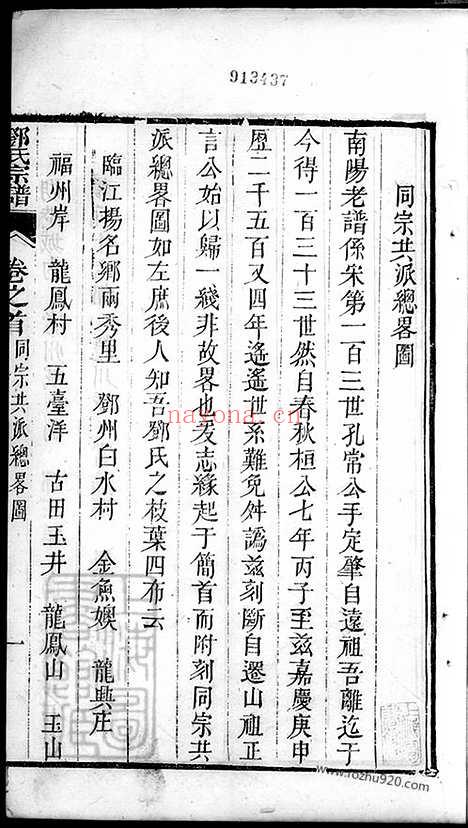 913437
同宗共派總畧圖
南陽老譜係宋第一百三世孔常公手定肇自遠祖吾離迄于
今得一百三十三世然自春秋桓公七年丙子至兹嘉慶庚申
歷二千五百又四年遙遙世系難免舛譌兹刻斷自遷山祖正
言公始以歸一綫非故畧也爰志緣起于簡首而附刻同宗共
派總畧圖如左庶後人知吾鄧氏之枝葉四布云
臨江揚名鄉兩秀里 鄧州白水村 金魚嶼 龍興庄
福州岸 龍鳳村 五臺洋 古田玉井 龍鳳山 玉山
鄧氏宗譜 卷之首 同宗共派總畧圖 一
nayona.cn
www.rozhu920.com